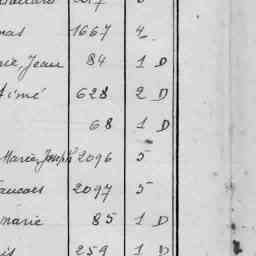 1667 4
Jean 84 1 D
Aimé 628 2 D
68 1 D
Marie, Joseph 2096 5
2097 5
marie 85 1 D
259 1 D